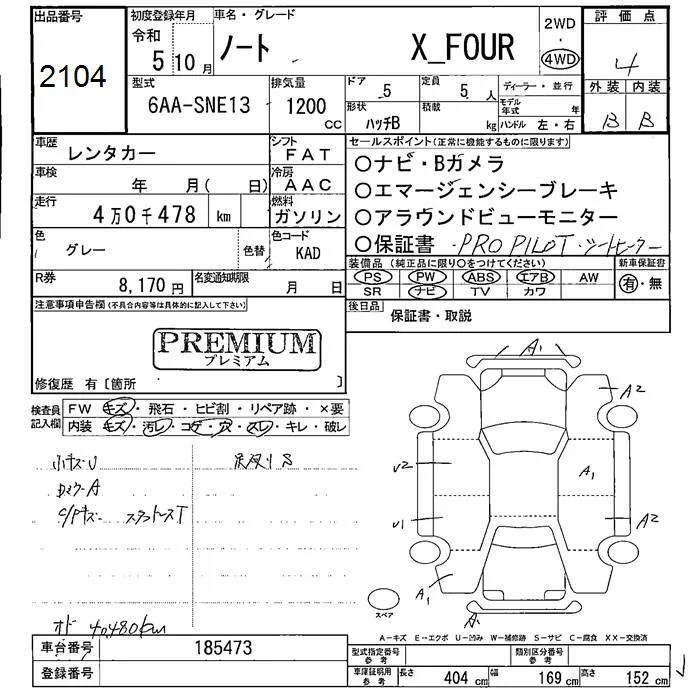 出品番号
2104
初度登録年月
令和
5 10 月
車名・グレード
ノート X_FOUR
2WD
・
4WD
評価点
4
外装 内装
B B
型式
6AA-SNE13
排気量
1200
CC
ドア
5
定員
5 人
形状
ハッチB
積載
kg
ディーラー・並行
モデル年式 年
ハンドル 左・右
車歴
レンタカー
シフト
FAT
車検
年 月( 日)
冷房
AAC
走行
4万0千478 km
燃料
ガソリン
色
グレー
色替
色コード
KAD
R券
8,170 円
名変通知期限
月 日
セールスポイント(正常に機能するものに限ります)
○ナビ・Bガメラ
○エマージェンシーブレーキ
○アラウンドビューモニター
○保証書 ・PRO PILOT・シートヒーター
装備品 (純正品に限り○をつけてください)
PS PW ABS エアB AW
SR ナビ TV カワ
新車保証書
有・無
後日品
保証書・取説
注意事項申告欄(不具合内容等は具体的に記入して下さい)
PREMIUM
プレミアム
修復歴 有〔箇所 〕
検査員
記入欄
FW キズ・飛石・ヒビ割・リペア跡・×要
内装 キズ・汚レ・コゲ・穴・スレ・キレ・破レ
小キズU
C/Pキズ
オド 40480km
A1
A2
A1
V2
V1
A2
A1
A
スペア
A-キズ E-エクボ U-凹み W-補修跡 S-サビ C-腐食 XX-交換済
車台番号 185473
登録番号
型式指定番号
参考
類別区分番号
参考
車庫証明用
参考
長さ 404 cm 幅 169 cm 高さ 152 cm